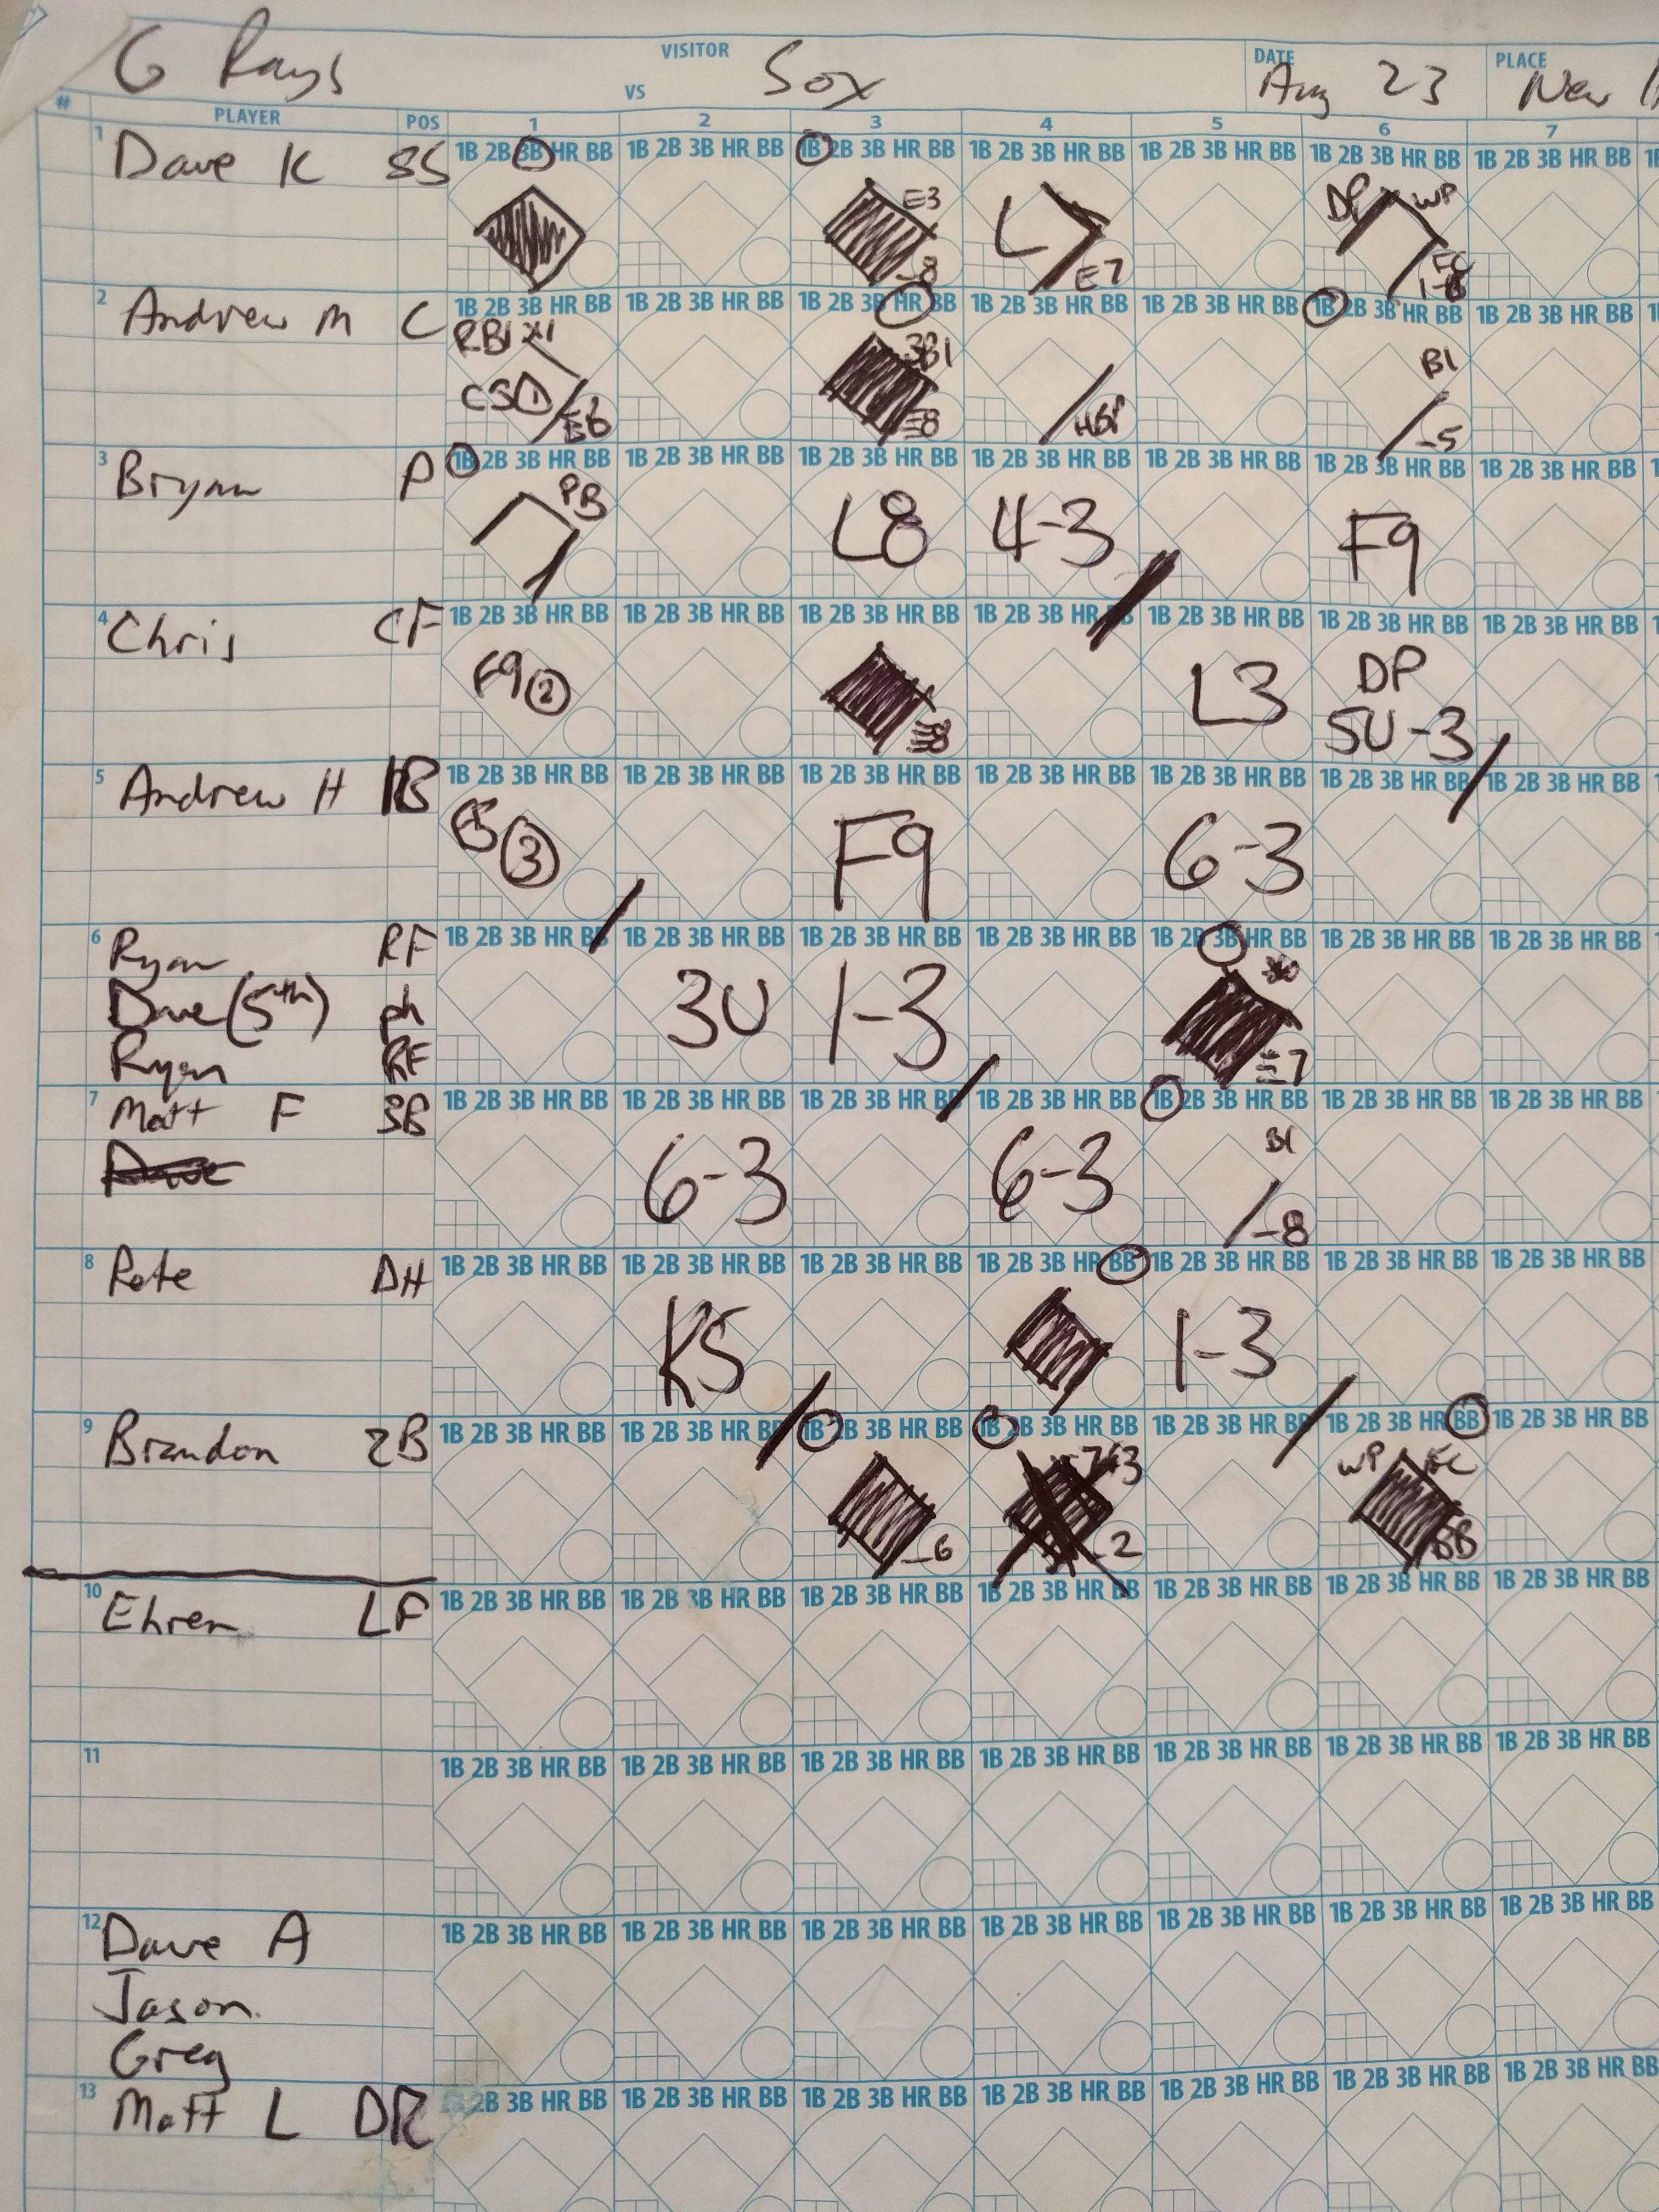 G Rays VISITOR VS Sox DATE Aug 23 PLACE New
# PLAYER POS 1 2 3 4 5 6 7
1 Dave K SS 1B 2B 3B HR BB 1B 2B 3B HR BB 1B 2B 3B HR BB 1B 2B 3B HR BB 1B 2B 3B HR BB 1B 2B 3B HR BB 1B 2B 3B HR BB
E3 -8 L E7 DP WP FC
2 Andrew M C 1B 2B 3B HR BB 1B 2B 3B HR BB 1B 2B 3B HR BB 1B 2B 3B HR BB 1B 2B 3B HR BB 1B 2B 3B HR BB 1B 2B 3B HR BB
CS 1 E6 HBP BI -5
3 Bryan P 1B 2B 3B HR BB 1B 2B 3B HR BB 1B 2B 3B HR BB 1B 2B 3B HR BB 1B 2B 3B HR BB 1B 2B 3B HR BB 1B 2B 3B HR BB
PB L8 4-3 F9
4 Chris CF 1B 2B 3B HR BB 1B 2B 3B HR BB 1B 2B 3B HR BB 1B 2B 3B HR BB 1B 2B 3B HR BB 1B 2B 3B HR BB 1B 2B 3B HR BB
F9 2 L3 DP
5U-3
5 Andrew H 1B 1B 2B 3B HR BB 1B 2B 3B HR BB 1B 2B 3B HR BB 1B 2B 3B HR BB 1B 2B 3B HR BB 1B 2B 3B HR BB 1B 2B 3B HR BB
3 F9 6-3
6 Ryan RF 1B 2B 3B HR BB 1B 2B 3B HR BB 1B 2B 3B HR BB 1B 2B 3B HR BB 1B 2B 3B HR BB 1B 2B 3B HR BB 1B 2B 3B HR BB
Dave (5th) ph 3U 1-3
Ryan RF
7 Matt F 3B 1B 2B 3B HR BB 1B 2B 3B HR BB 1B 2B 3B HR BB 1B 2B 3B HR BB 1B 2B 3B HR BB 1B 2B 3B HR BB 1B 2B 3B HR BB
6-3 6-3 BI -8
8 Pete DH 1B 2B 3B HR BB 1B 2B 3B HR BB 1B 2B 3B HR BB 1B 2B 3B HR BB 1B 2B 3B HR BB 1B 2B 3B HR BB 1B 2B 3B HR BB
KS 1-3
9 Brandon 2B 1B 2B 3B HR BB 1B 2B 3B HR BB 1B 2B 3B HR BB 1B 2B 3B HR BB 1B 2B 3B HR BB 1B 2B 3B HR BB 1B 2B 3B HR BB
-6 -2 WP FC
10 Ehren LF 1B 2B 3B HR BB 1B 2B 3B HR BB 1B 2B 3B HR BB 1B 2B 3B HR BB 1B 2B 3B HR BB 1B 2B 3B HR BB 1B 2B 3B HR BB
11 1B 2B 3B HR BB 1B 2B 3B HR BB 1B 2B 3B HR BB 1B 2B 3B HR BB 1B 2B 3B HR BB 1B 2B 3B HR BB 1B 2B 3B HR BB
12 Dave A 1B 2B 3B HR BB 1B 2B 3B HR BB 1B 2B 3B HR BB 1B 2B 3B HR BB 1B 2B 3B HR BB 1B 2B 3B HR BB 1B 2B 3B HR BB
Jason
Greg
13 Matt L DR 2B 3B HR BB 1B 2B 3B HR BB 1B 2B 3B HR BB 1B 2B 3B HR BB 1B 2B 3B HR BB 1B 2B 3B HR BB 1B 2B 3B HR BB